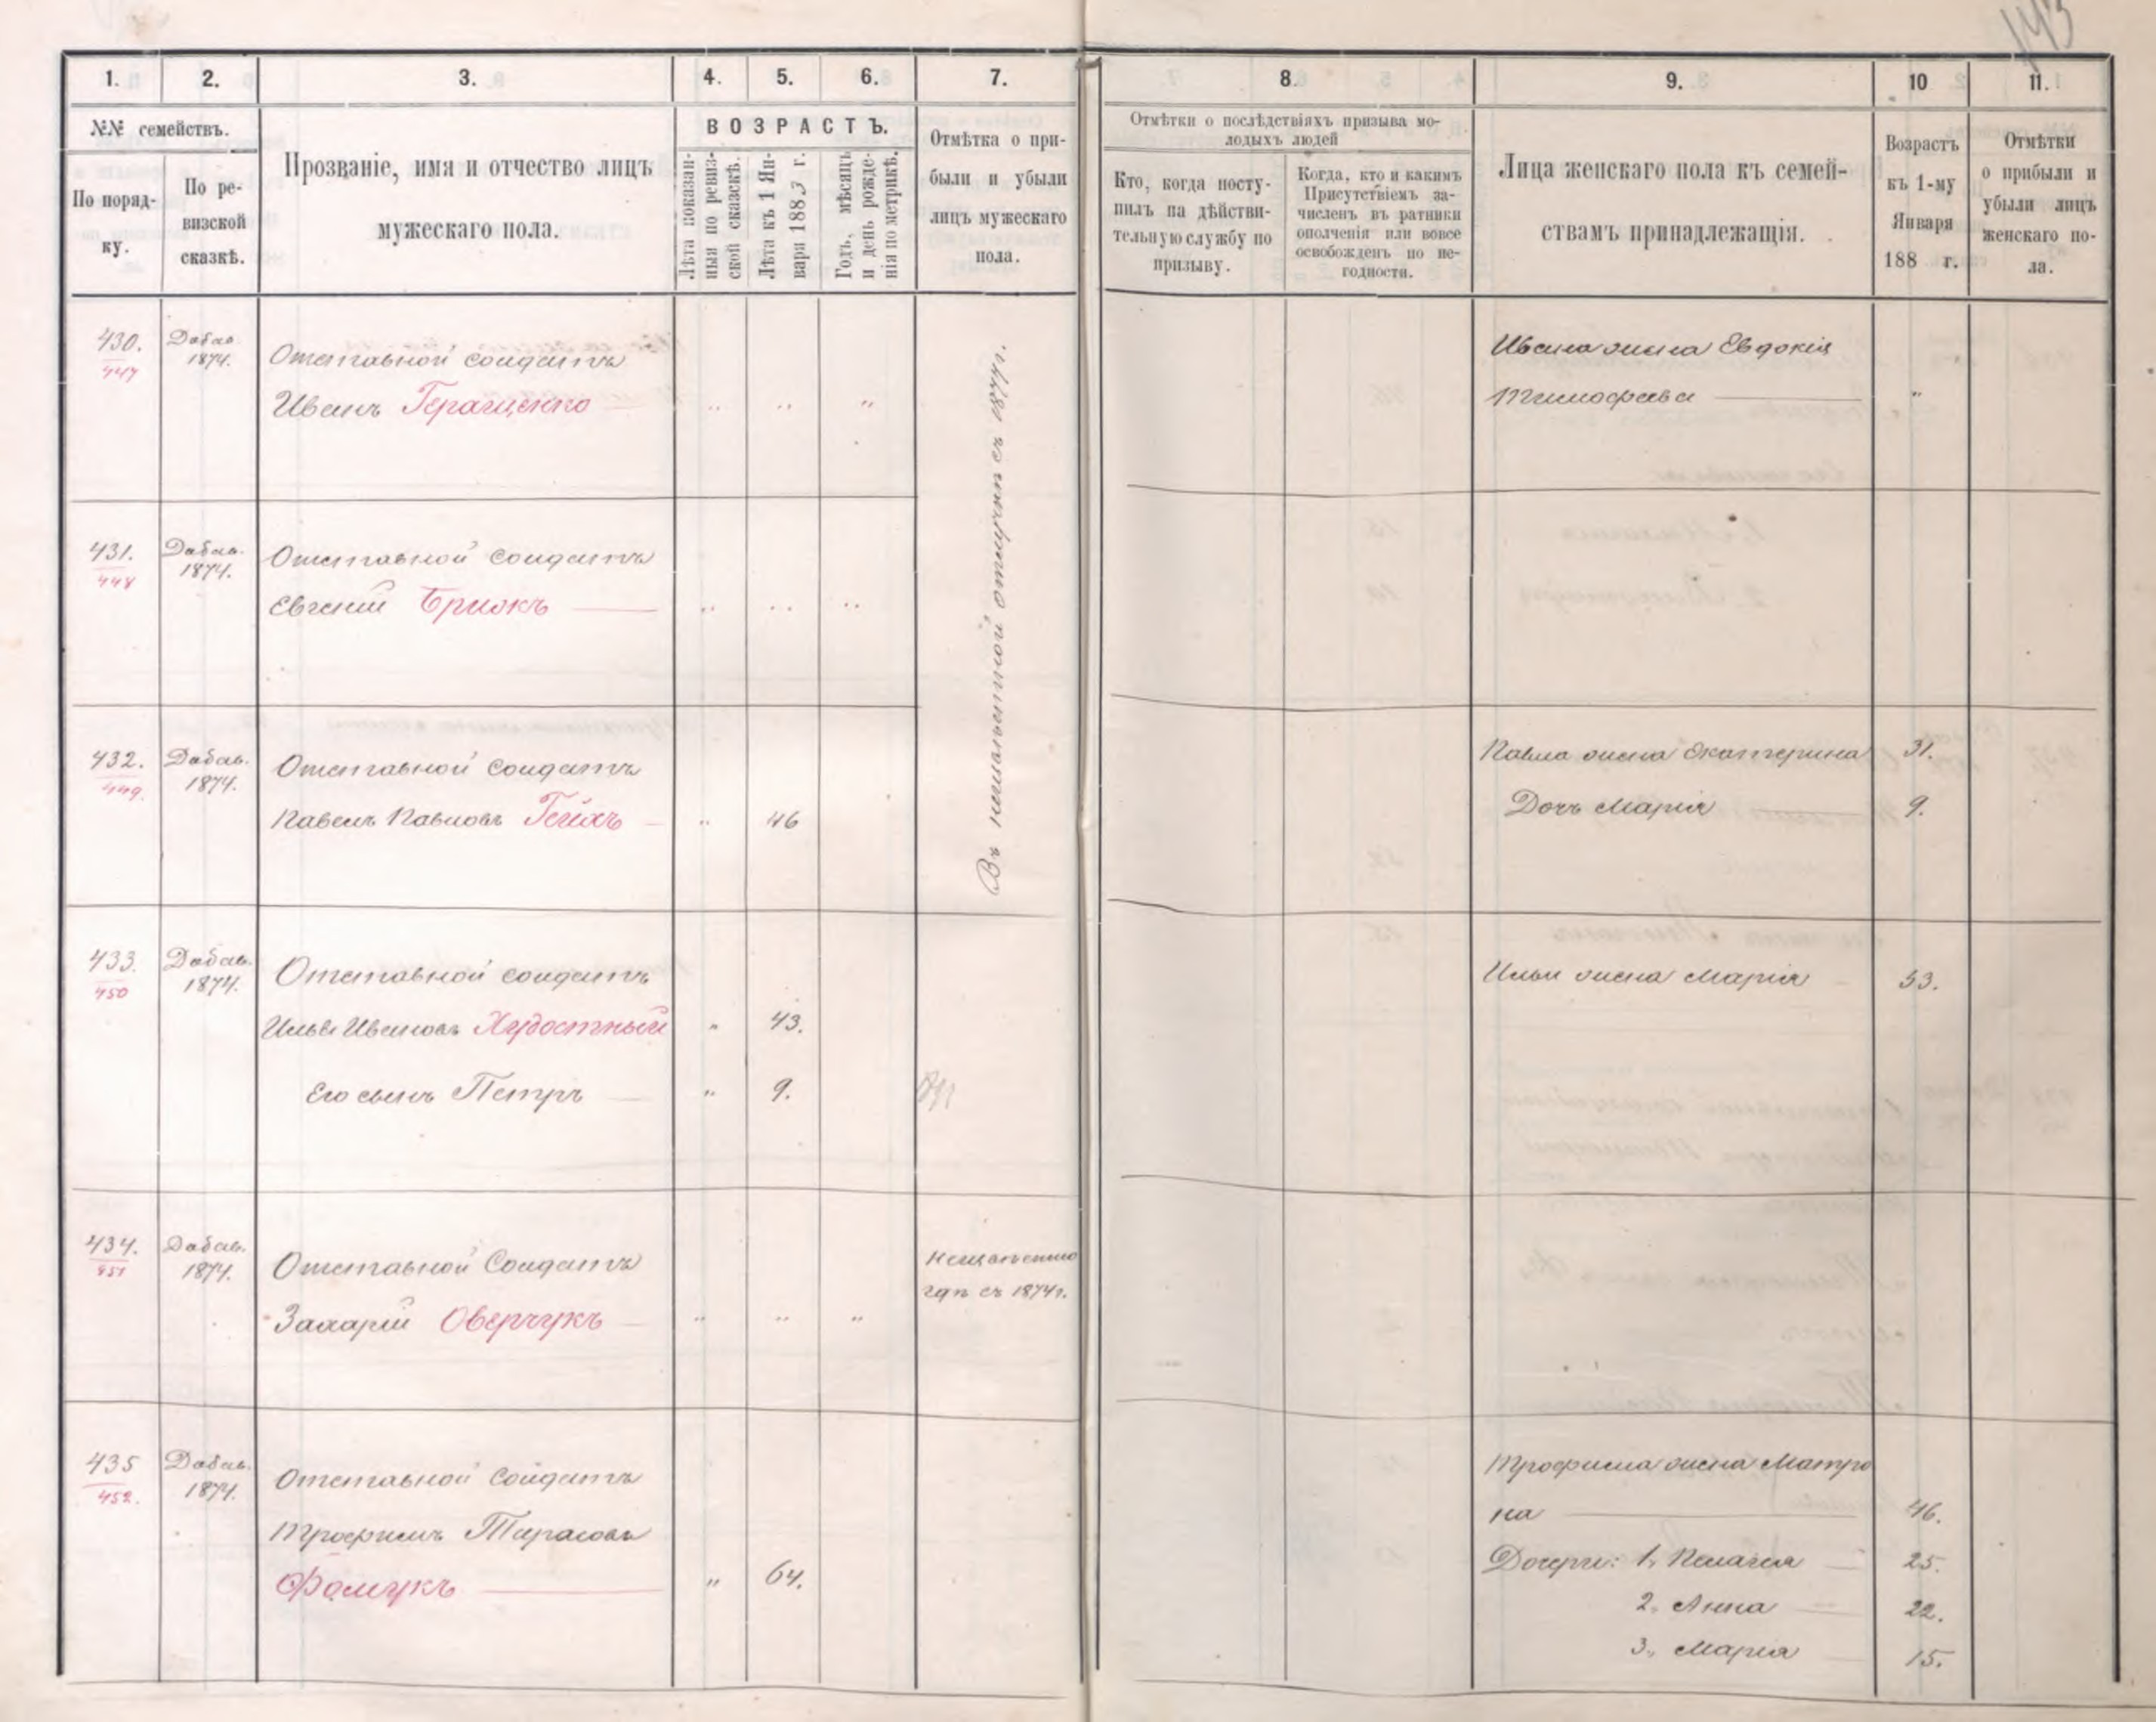 143
1. 2. 3. 4. 5. 6. 7. 8. 9. 10 11.
№№ семействъ.
По порядку.
По ревизской сказкѣ.
Прозваніе, имя и отчество лицъ
мужескаго пола.
ВОЗРАСТЪ.
Лѣта показан-
ныя по ревиз-
ской сказкѣ.
Лѣта къ 1 Ян-
варя 1883 г.
Годъ, мѣсяцъ
и день рожде-
нія по метрикѣ.
Отмѣтка о при-
были и убыли
лицъ мужескаго
пола.
Отмѣтки о послѣдствіяхъ призыва мо-
лодыхъ людей
Кто, когда посту-
пилъ на дѣйстви-
тельную службу по
призыву.
Когда, кто и какимъ
Присутствіемъ за-
численъ въ ратники
ополченія или вовсе
освобожденъ по не-
годности.
Лица женскаго пола къ семей-
ствамъ принадлежащія.
Возрастъ
къ 1-му
Января
188 г.
Отмѣтки
о прибыли и
убыли лицъ
женскаго по-
ла.
430. Добав. Отставной солдатъ Ивана жена Евдокія
447 1874. Иванъ Геращенко " " " Тимофѣева "
Въ отлучкѣ съ 1874г.
431. Добав. Отставной солдатъ
448 1874. Евгеній Бриокъ " " "
432. Добав. Отставной солдатъ Павла жена Екатерина 31.
449. 1874. Павелъ Павловъ Гейхъ " 46 Дочь Марія 9.
433. Добав. Отставной солдатъ Ильи жена Марія 33.
450 1874. Илья Ивановъ Хвостный " 43.
Его сынъ Петръ " 9.
434. Добав. Отставной Солдатъ
451 1874. Захарій Оверчукъ " " "
гдѣ съ 1874г.
435 Добав. Отставной Солдатъ Трофима жена Матро
452. 1874. Трофимъ Тарасовъ на 46.
Фомукъ " 64. Дочери: 1, Пелагея 25.
2, Анна 22.
3, Марія 15.